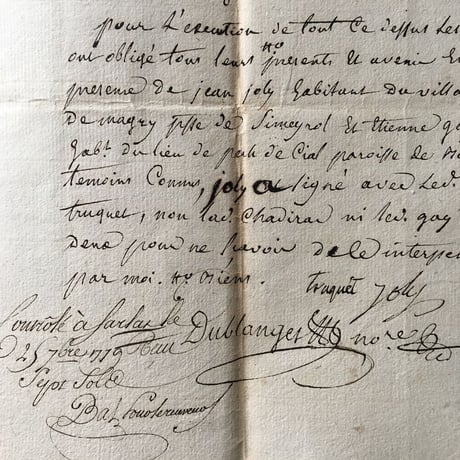 pour L'execution de tout Ce dessus Les
ont obligé tous leurs presents Et avenir En
presence de jean joly habitant du villa
De magry psse de Simeyrol Et Etienne ga
habt. du lieu de pech de Cial paroisse de
temoins Connus, joly a signé avec Led.
truquet, non lad. Chadirac ni led. gay
De ne scavoir de Ce interpel
par moi.
truquet Joly
Controlé à Sarlat Le
25 7bre 1779 Reçu
Sept Sols
Dublanget nore